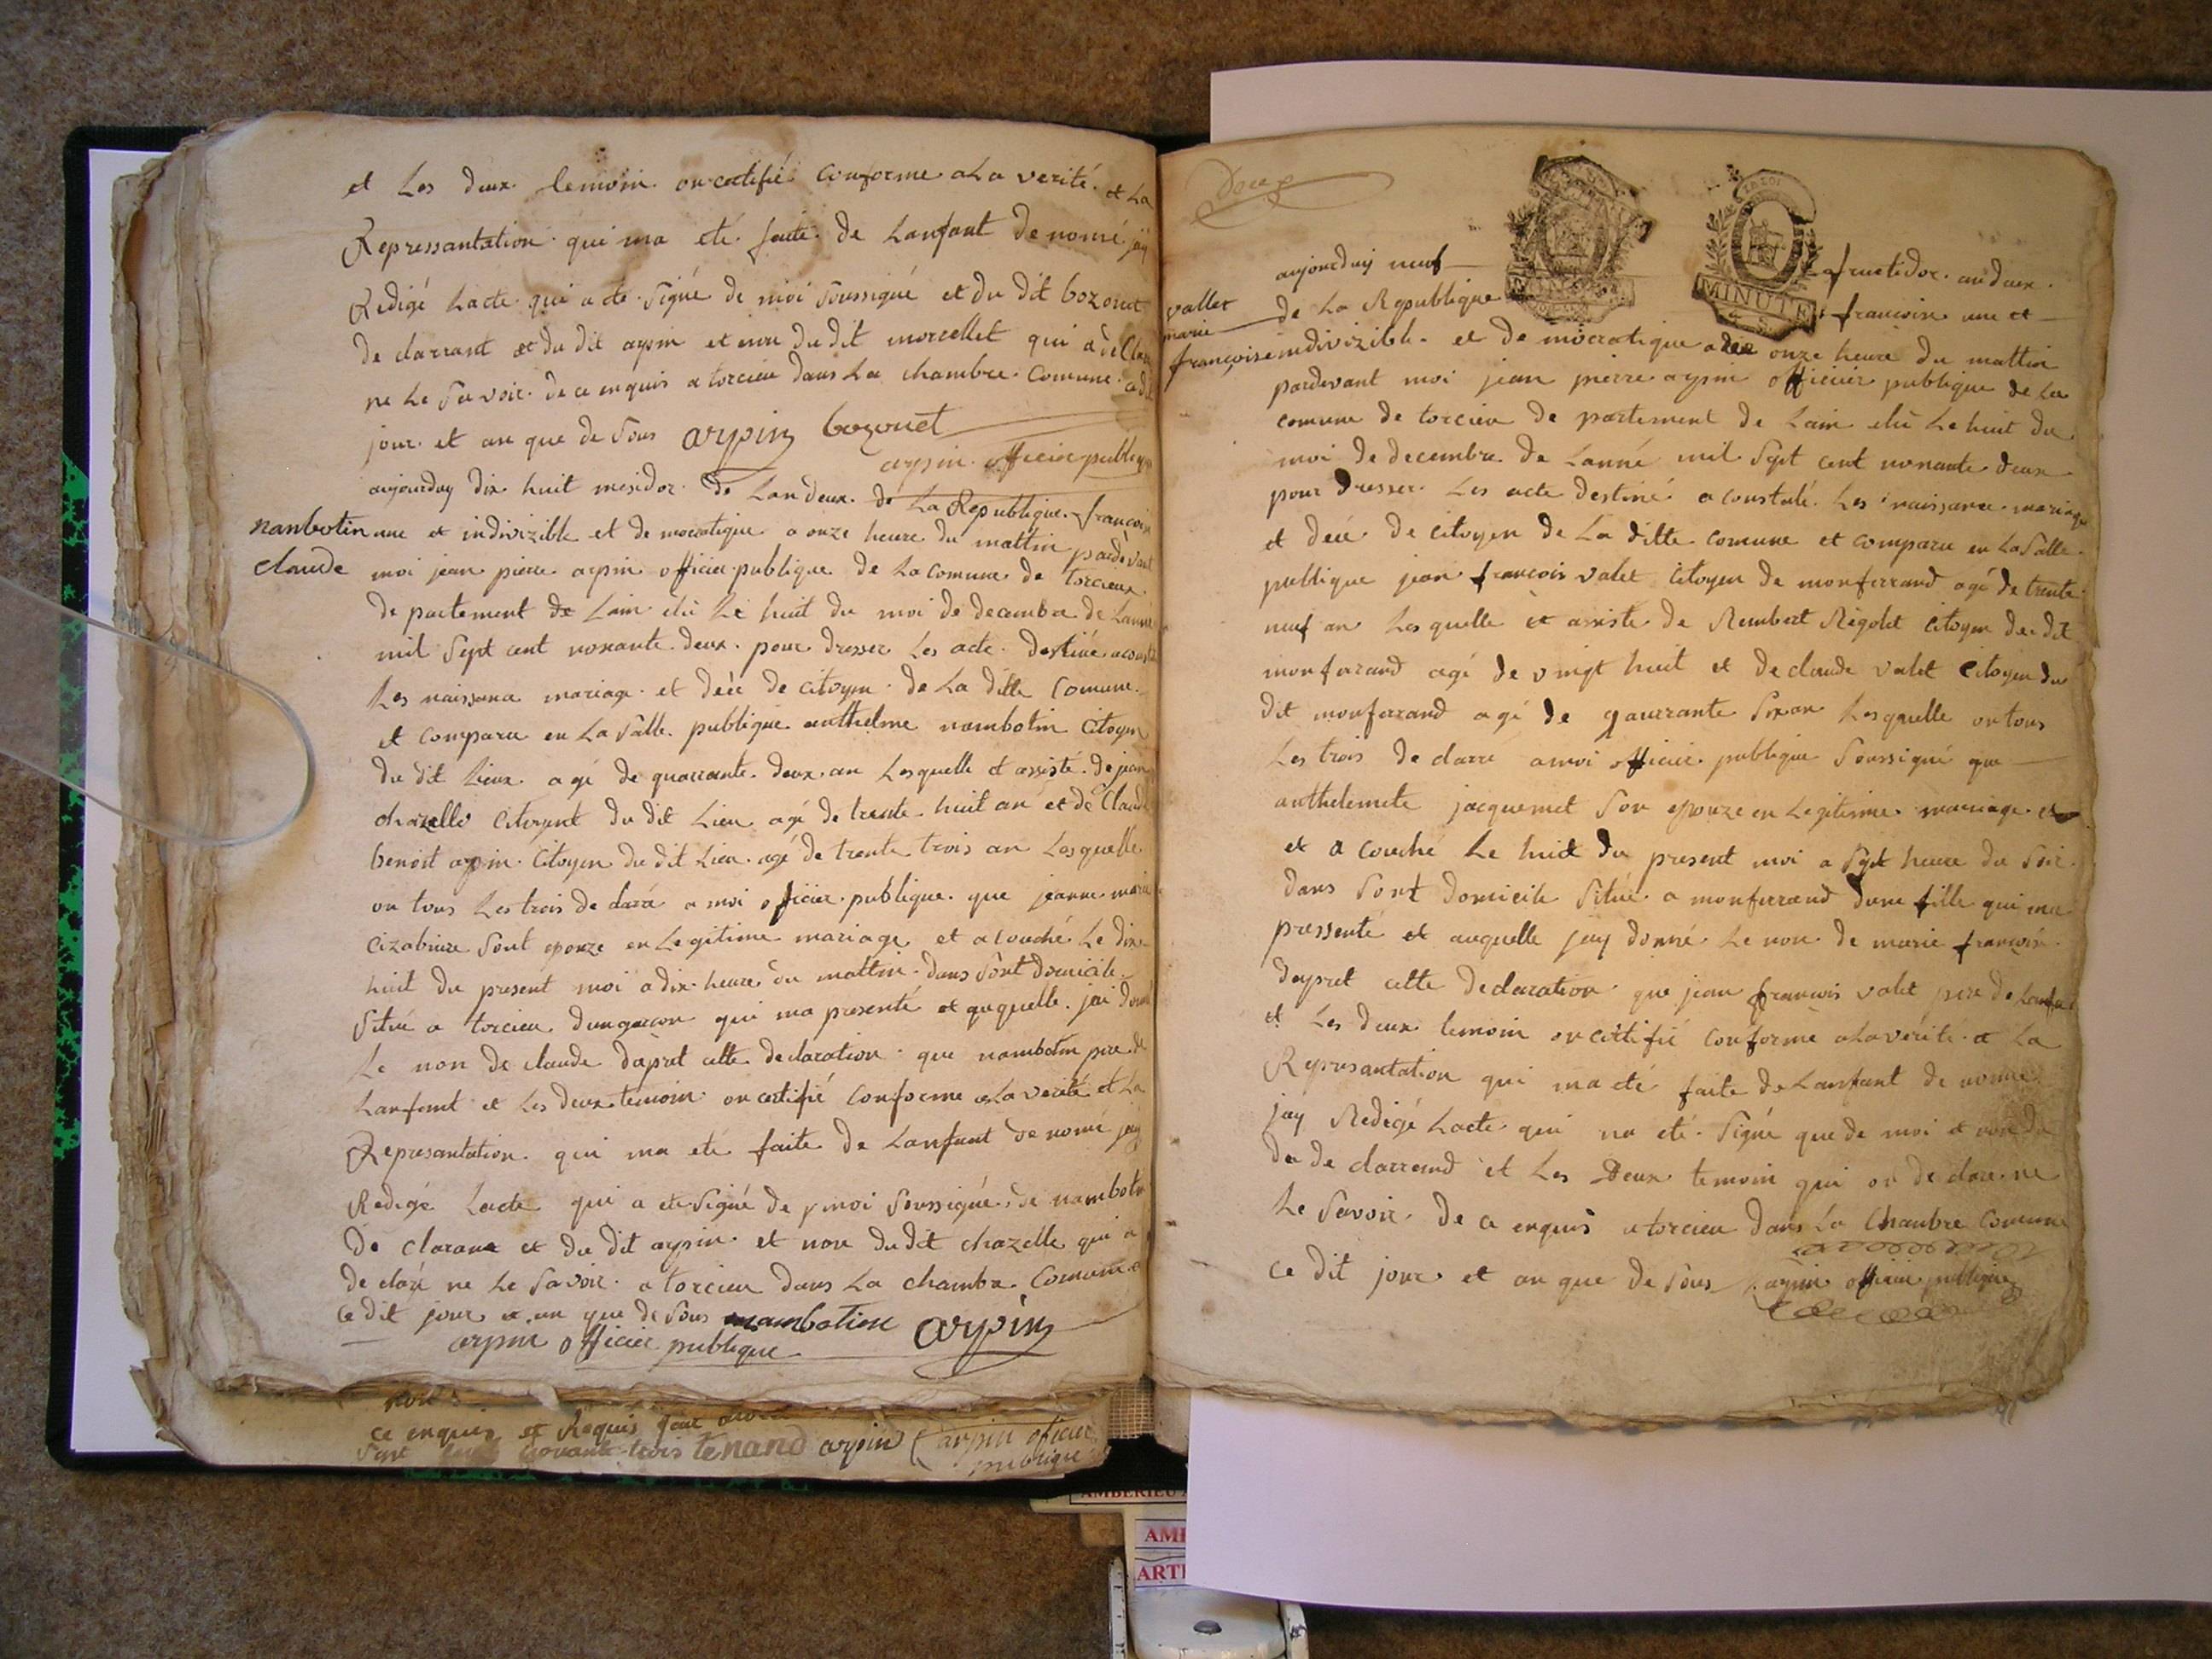 et Les deux temoin on certifié conforme a La verité. et La
Repressantation qui ma eté faite de Lanfant de nomé jay
Redigé Lacte qui a eté signé de moi soussigné et du dit bozonet
de clarrant et du dit arpin et non du dit morcellet qui a declare
ne Le savoir de ce enquis a torcieu dans La chambre comune
jour et an que de sous arpin bozonet
arpin officier publique
nanbotin
claude
aujourduy dix huit mesidor de Lan deux de La Republique francoise
une et indivizible et de mocratique a onze heure du mattin pardevant
moi jean pierre arpin officier publique de La comune de torcieu
de partement de Lain elü Le huit du moi de decembre de Lanné
mil sept cent nonante deux pour dresser Les acte destiné a
Les naissance mariage et decé de citoyen de La ditte comune
et comparu en La salle publique anthelme nambotin citoyen
du dit Lieux agé de quarrante deux an Lesquelle et assisté de jean
chazelle citoyent du dit Lieu agé de trente huit an et de Claude
benoit arpin citoyen du dit Lieu agé de trente trois an Lesquelle
on tous Les trois de claré a moi officier publique que jeanne marie
sont epouze en Legitime mariage et a couché Le dix
huit du present moi a dix heure du mattin dans sont domicile
situé a torcieu dun garcon qui ma presenté et auquelle jai donné
Le non de claude dapret cette declaration que nambotin pere de
Lanfant et Les deux temoin on certifié conforme a La verité et La
Represantation qui ma eté faite de Lanfant de nomé jay
Redigé Lacte qui a eté signé de moi soussigné, de nambotin
de clarant et du dit arpin et non du dit chazelle qui a
de claré ne Le savoir a torcieu dans La chambre Comune
ce dit jour et an que de sous nambotin arpin
arpin officier publique
ce enquis et Requis
nonante trois tenand arpin arpin oficier
publique
deux
vallet
marie
françoise
aujourduy neuf fructidor an deux
de La Republique francoise une et
indivizible et de mocratique a onze heure du mattin
pardevant moi jean pierre arpin officier publique de La
comune de torcieu de partement de Lain elü Le huit du
moi de decembre de Lanné mil sept cent nonante deux
pour dresser Les acte destiné a constaté Les naissance mariage
et decé de citoyen de La ditte comune et comparu en La salle
publique jean francois valet citoyen de monferrand agé de trente
neuf an Lesquelle et assisté de Rembert Rigolet citoyen du dit
monferrand agé de vingt huit et de claude valet citoyen du
dit monferrand agé de quarrante six an Lesquelle on tous
Les trois de clarré a moi officier publique soussigné que
anthelemete jacquemet son epouze en Legitime mariage
et a couché Le huit du present moi a sept heure du soir
dans sont domicile situé a monferrand dune fille qui ma
pressenté et auquelle jay donné Le non de marie francoise
dapret cette declaration que jean francois valet pere de Lanfant
et Les deux temoin on certifié conforme a La verité et La
Represantation qui ma eté faite de Lanfant de nomé
jay Redigé Lacte qui na eté signé que de moi et non du
du de clarrand et Les Deux temoin qui on declare ne
Le savoir de ce enquis a torcieu dans La chanbre comune
ce dit jour et an que de sous arpin officier publique
MINUTE
AMBERIEU
AM
ARTI